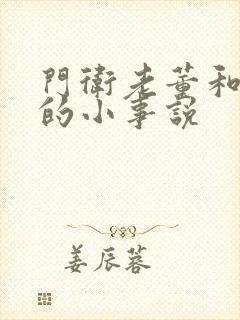 門衛老董和
的小事説
姜辰蓉